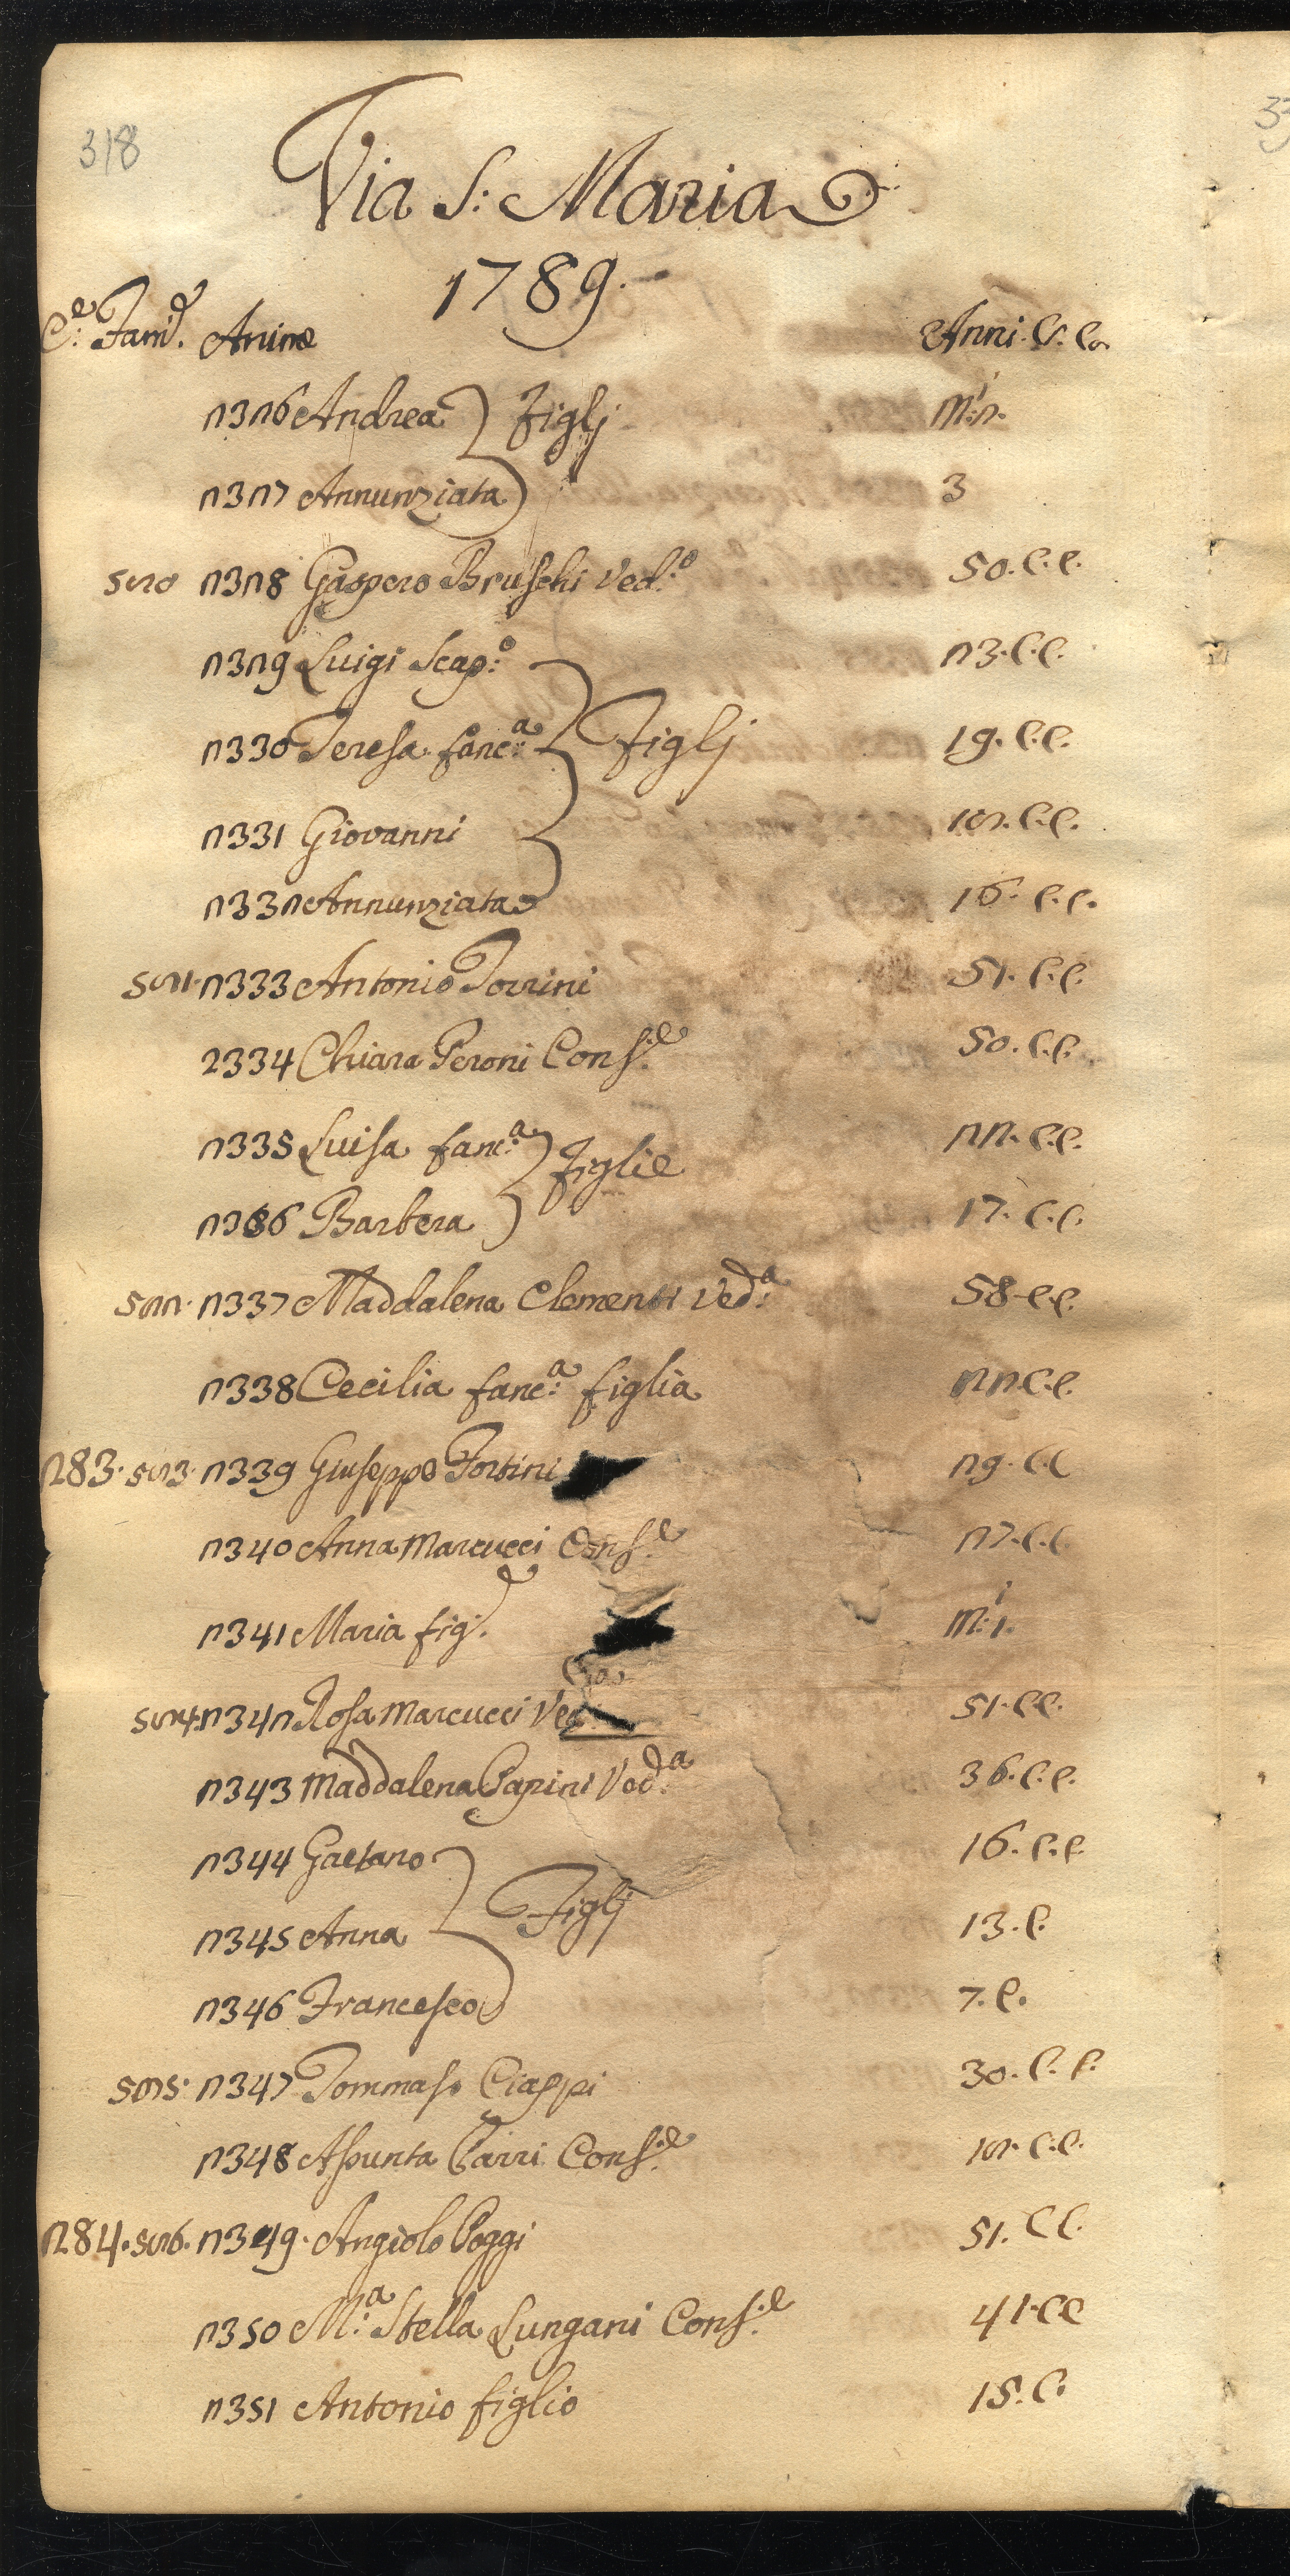 318
Via S: Maria
1789.
C:e Fam:e Anime Anni. C. C.
2326 Andrea } Figlj m:i 2.
2327 Annunziata 3
520 2328 Gaspero Bruschi Ved:o 50. C. C.
2329 Luigi Scap:o 23. C. C.
2330 Teresa fanc:a } Figlj 19. C. C.
2331 Giovanni C. C.
2332 Annunziata 16. C. C.
521. 2333 Antonio Torrini 51. C. C.
2334 Chiara Peroni Cons:e 50. C. C.
2335 Luisa fanc:a } Figlie 22. C. C.
2336 Barbera 17. C. C.
522. 2337 Maddalena Clementi Ved:a 58. C. C.
2338 Cecilia fanc:a figlia 22. C. C.
283. 523. 2339 Giuseppe Fortini 29. C. C
2340 Anna Marcucci Cons:e 27. C. C
2341 Maria fig:a m:i 1.
524. 2342 Rosa Marcucci Ved:a 51. C C.
2343 Maddalena Papini Ved:a 36. C. C.
2344 Gaetano 16. C. C
2345 Anna } Figlj 13. C.
2346 Francesco 7. C.
525. 2347 Tommaso Ciappi 30. C. C.
2348 Assunta Parri Cons:e C. C.
284. 526. 2349. Angiolo Poggi 51. C C.
2350 M:a Stella Lungani Cons:e 41. C C
2351 Antonio figlio 15. C.